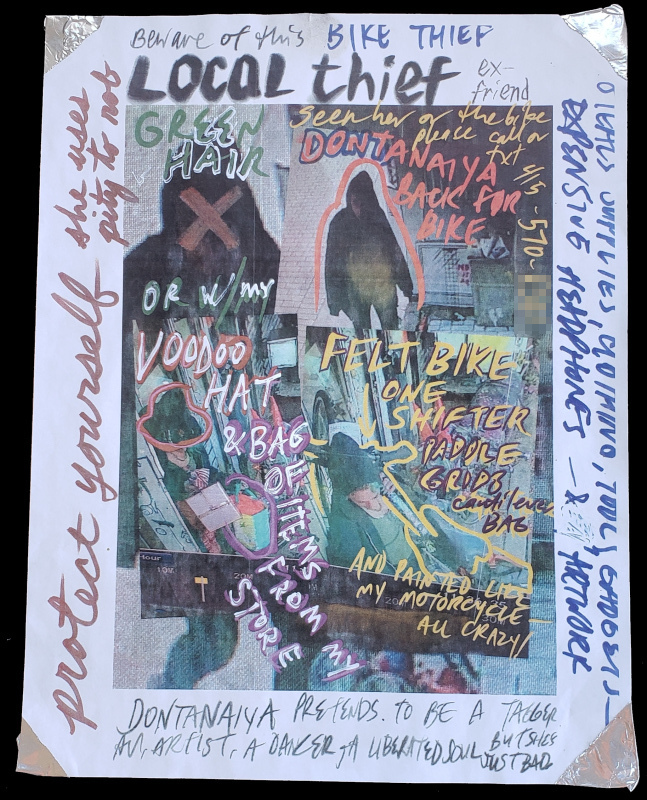 BEWARE of this BIKE THIEF
LOCAL thief
ex-
friend
she uses
pity to rob
protect yourself
GREEN
HAIR
OR w/ my
Seen her or the bike
please call or
txt
-570-
DONTANAIYA
BACK FOR
BIKE
VOODOO
HAT
& BAG
OF ITEMS
FROM MY
STORE
FELT BIKE
ONE
SHIFTER
PADDLE
GRIPS
BAG
AND PAINTED LIKE
MY MOTORCYCLE—
ALL CRAZY!
hour
10
SUPPLIES, TOOLS, GADGETS—
EXPENSIVE HEADPHONES — & ARTWORK
DONTANAIYA PRETENDS. TO BE A TAGGER
AN, ARTIST, A DANCER, A LIBERATED SOUL BUT SHES
JUST BAD